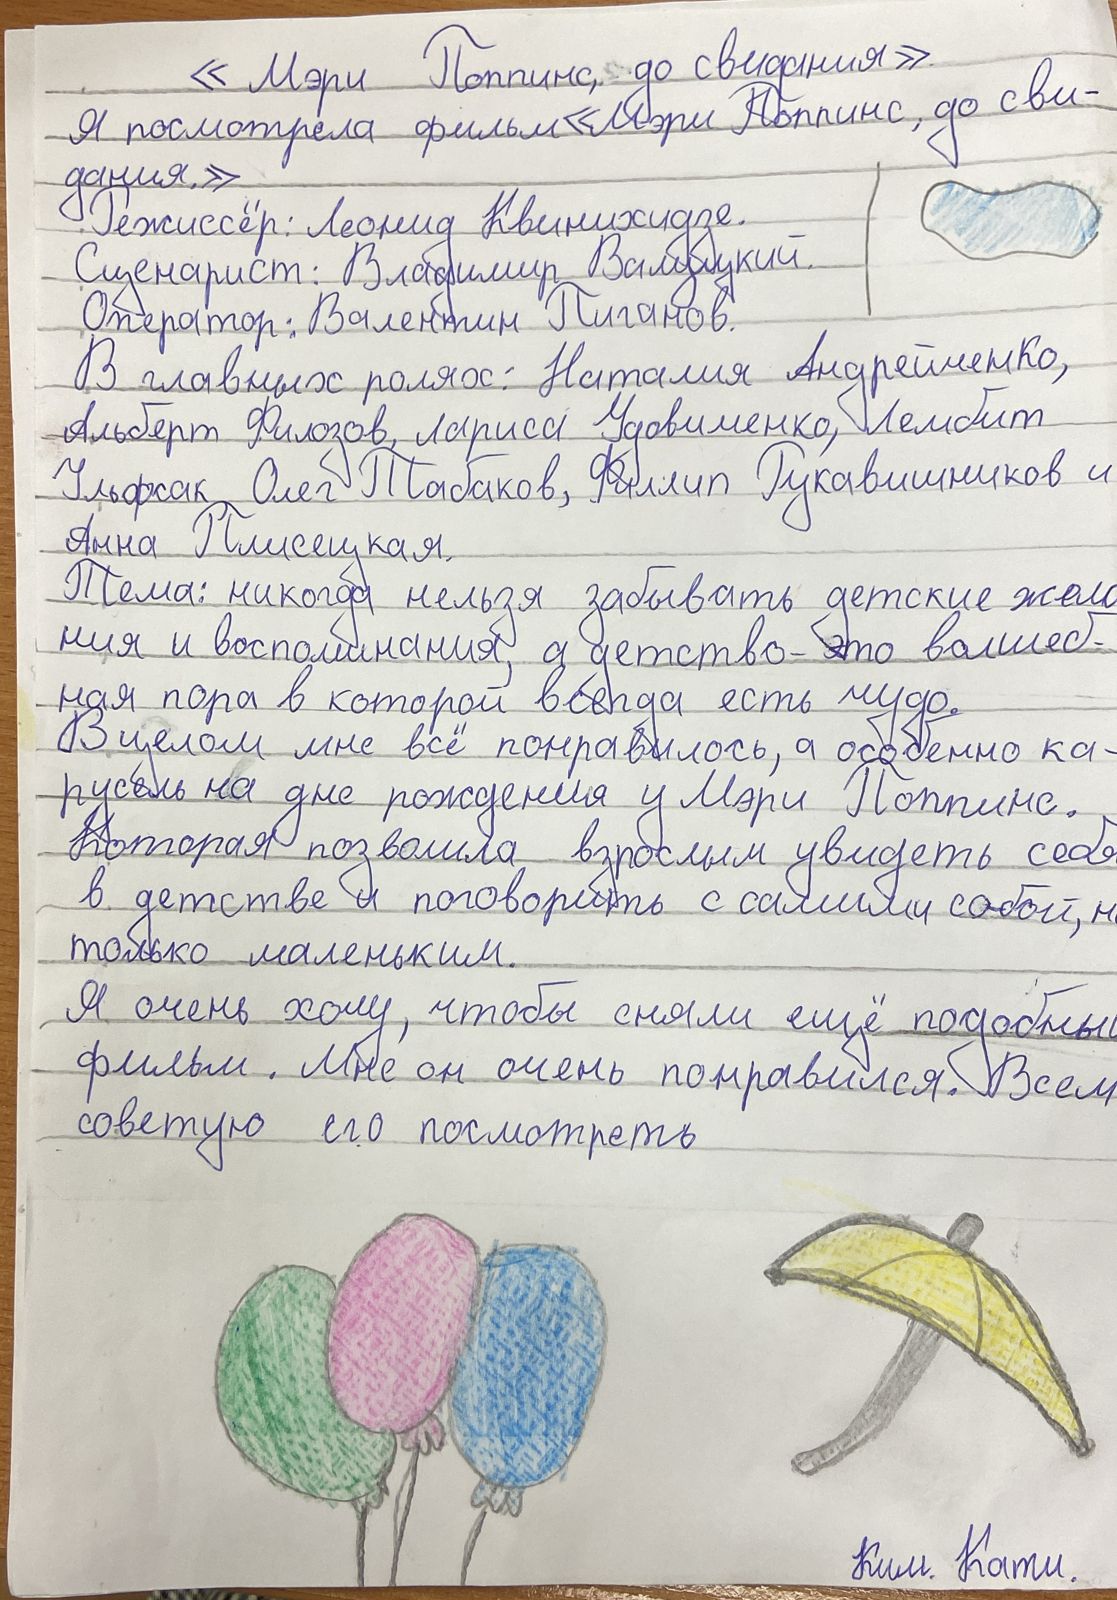 « Мэри Поппинс, до свидания»
Я посмотрела фильм «Мэри Поппинс, до сви-
дания.»
Режиссёр: Леонид Квинихидзе.
Сценарист: Владимир Валуцкий.
Оператор: Валентин Пиганов.
В главных ролях: Наталия Андрейченко,
Альберт Филозов, Лариса Удовиченко, Лембит
Ульфсак, Олег Табаков, Филлип Рукавишников и
Анна Плисецкая.
Тема: никогда нельзя забывать детские жела
ния и воспоминания, а детство- это волшеб-
ная пора в которой всегда есть чудо.
В целом мне всё понравилось, а особенно ка-
русель на дне рождения у Мэри Поппинс.
Которая позволила взрослым увидеть себя
в детстве и поговорить с самими собой, но
только маленьким.
Я очень хочу, чтобы сняли ещё подобный
фильм. Мне он очень понравился. Всем
советую его посмотреть
Ким. Кати.